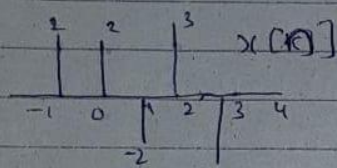 2 2 3 x[n]
-1 0 1 2 3 4
-2